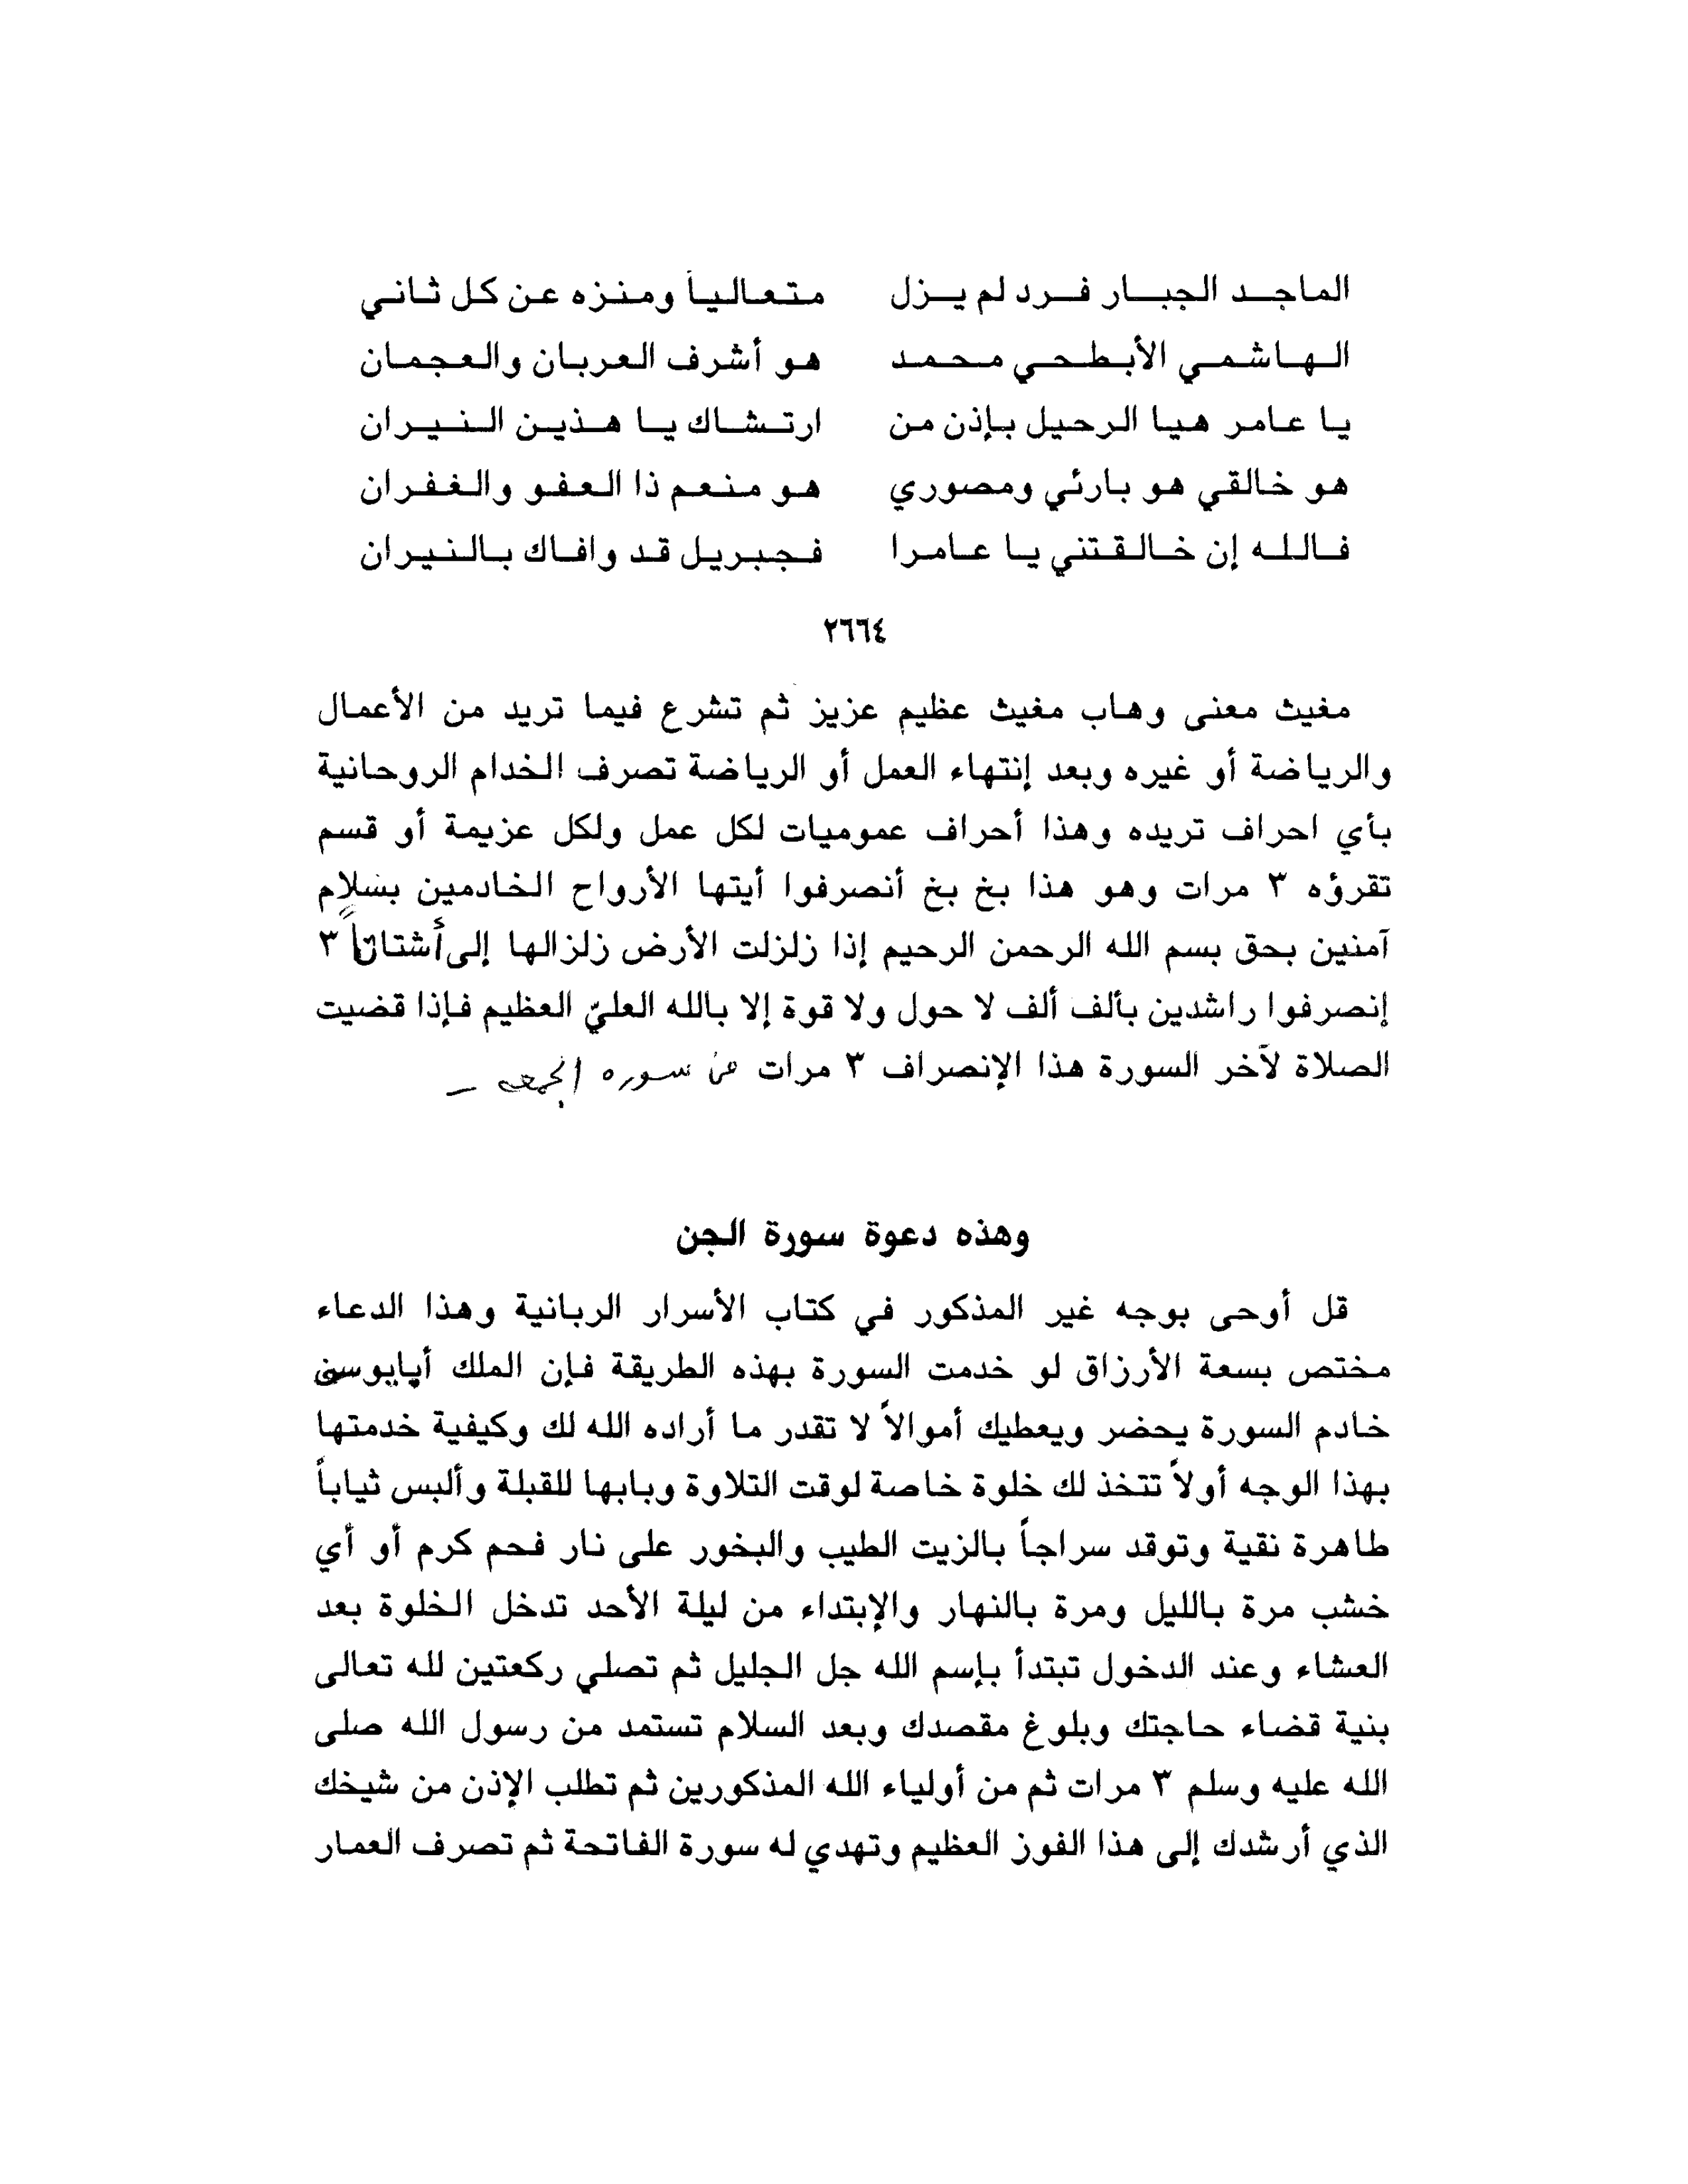 الماجد الجبار فرد لم يزل متعالياً ومنزه عن كل ثاني
الهاشمي الأبطحي محمد هو أشرف العربان والعجمان
يا عامر هيا الرحيل بإذن من ارتشاك يا هذين النيران
هو خالقي هو بارئي ومصوري هو منعم ذا العفو والغفران
فالله إن خالقتني يا عامرا فجبريل قد وافاك بالنيران
٢٦٦٤
مغيث معنى وهاب مغيث عظيم عزيز ثم تشرع فيما تريد من الأعمال
والرياضة أو غيره وبعد إنتهاء العمل أو الرياضة تصرف الخدام الروحانية
بأي احراف تريده وهذا أحراف عموميات لكل عمل ولكل عزيمة أو قسم
تقرؤه ٣ مرات وهو هذا بخ بخ أنصرفوا أيتها الأرواح الخادمين بسلام
آمنين بحق بسم الله الرحمن الرحيم إذا زلزلت الأرض زلزالها إلى أشتاتاً ٣
إنصرفوا راشدين بألف ألف لا حول ولا قوة إلا بالله العليّ العظيم فإذا قضيت
الصلاة لآخر السورة هذا الإنصراف ٣ مرات من سوره الجمعه –
وهذه دعوة سورة الجن
قل أوحى بوجه غير المذكور في كتاب الأسرار الربانية وهذا الدعاء
مختص بسعة الأرزاق لو خدمت السورة بهذه الطريقة فإن الملك
خادم السورة يحضر ويعطيك أموالاً لا تقدر ما أراده الله لك وكيفية خدمتها
بهذا الوجه أولاً تتخذ لك خلوة خاصة لوقت التلاوة وبابها للقبلة وألبس ثياباً
طاهرة نقية وتوقد سراجاً بالزيت الطيب والبخور على نار فحم كرم أو أي
خشب مرة بالليل ومرة بالنهار والإبتداء من ليلة الأحد تدخل الخلوة بعد
العشاء وعند الدخول تبتدأ بإسم الله جل الجليل ثم تصلي ركعتين لله تعالى
بنية قضاء حاجتك وبلوغ مقصدك وبعد السلام تستمد من رسول الله صلى
الله عليه وسلم ٣ مرات ثم من أولياء الله المذكورين ثم تطلب الإذن من شيخك
الذي أرشدك إلى هذا الفوز العظيم وتهدي له سورة الفاتحة ثم تصرف العمار